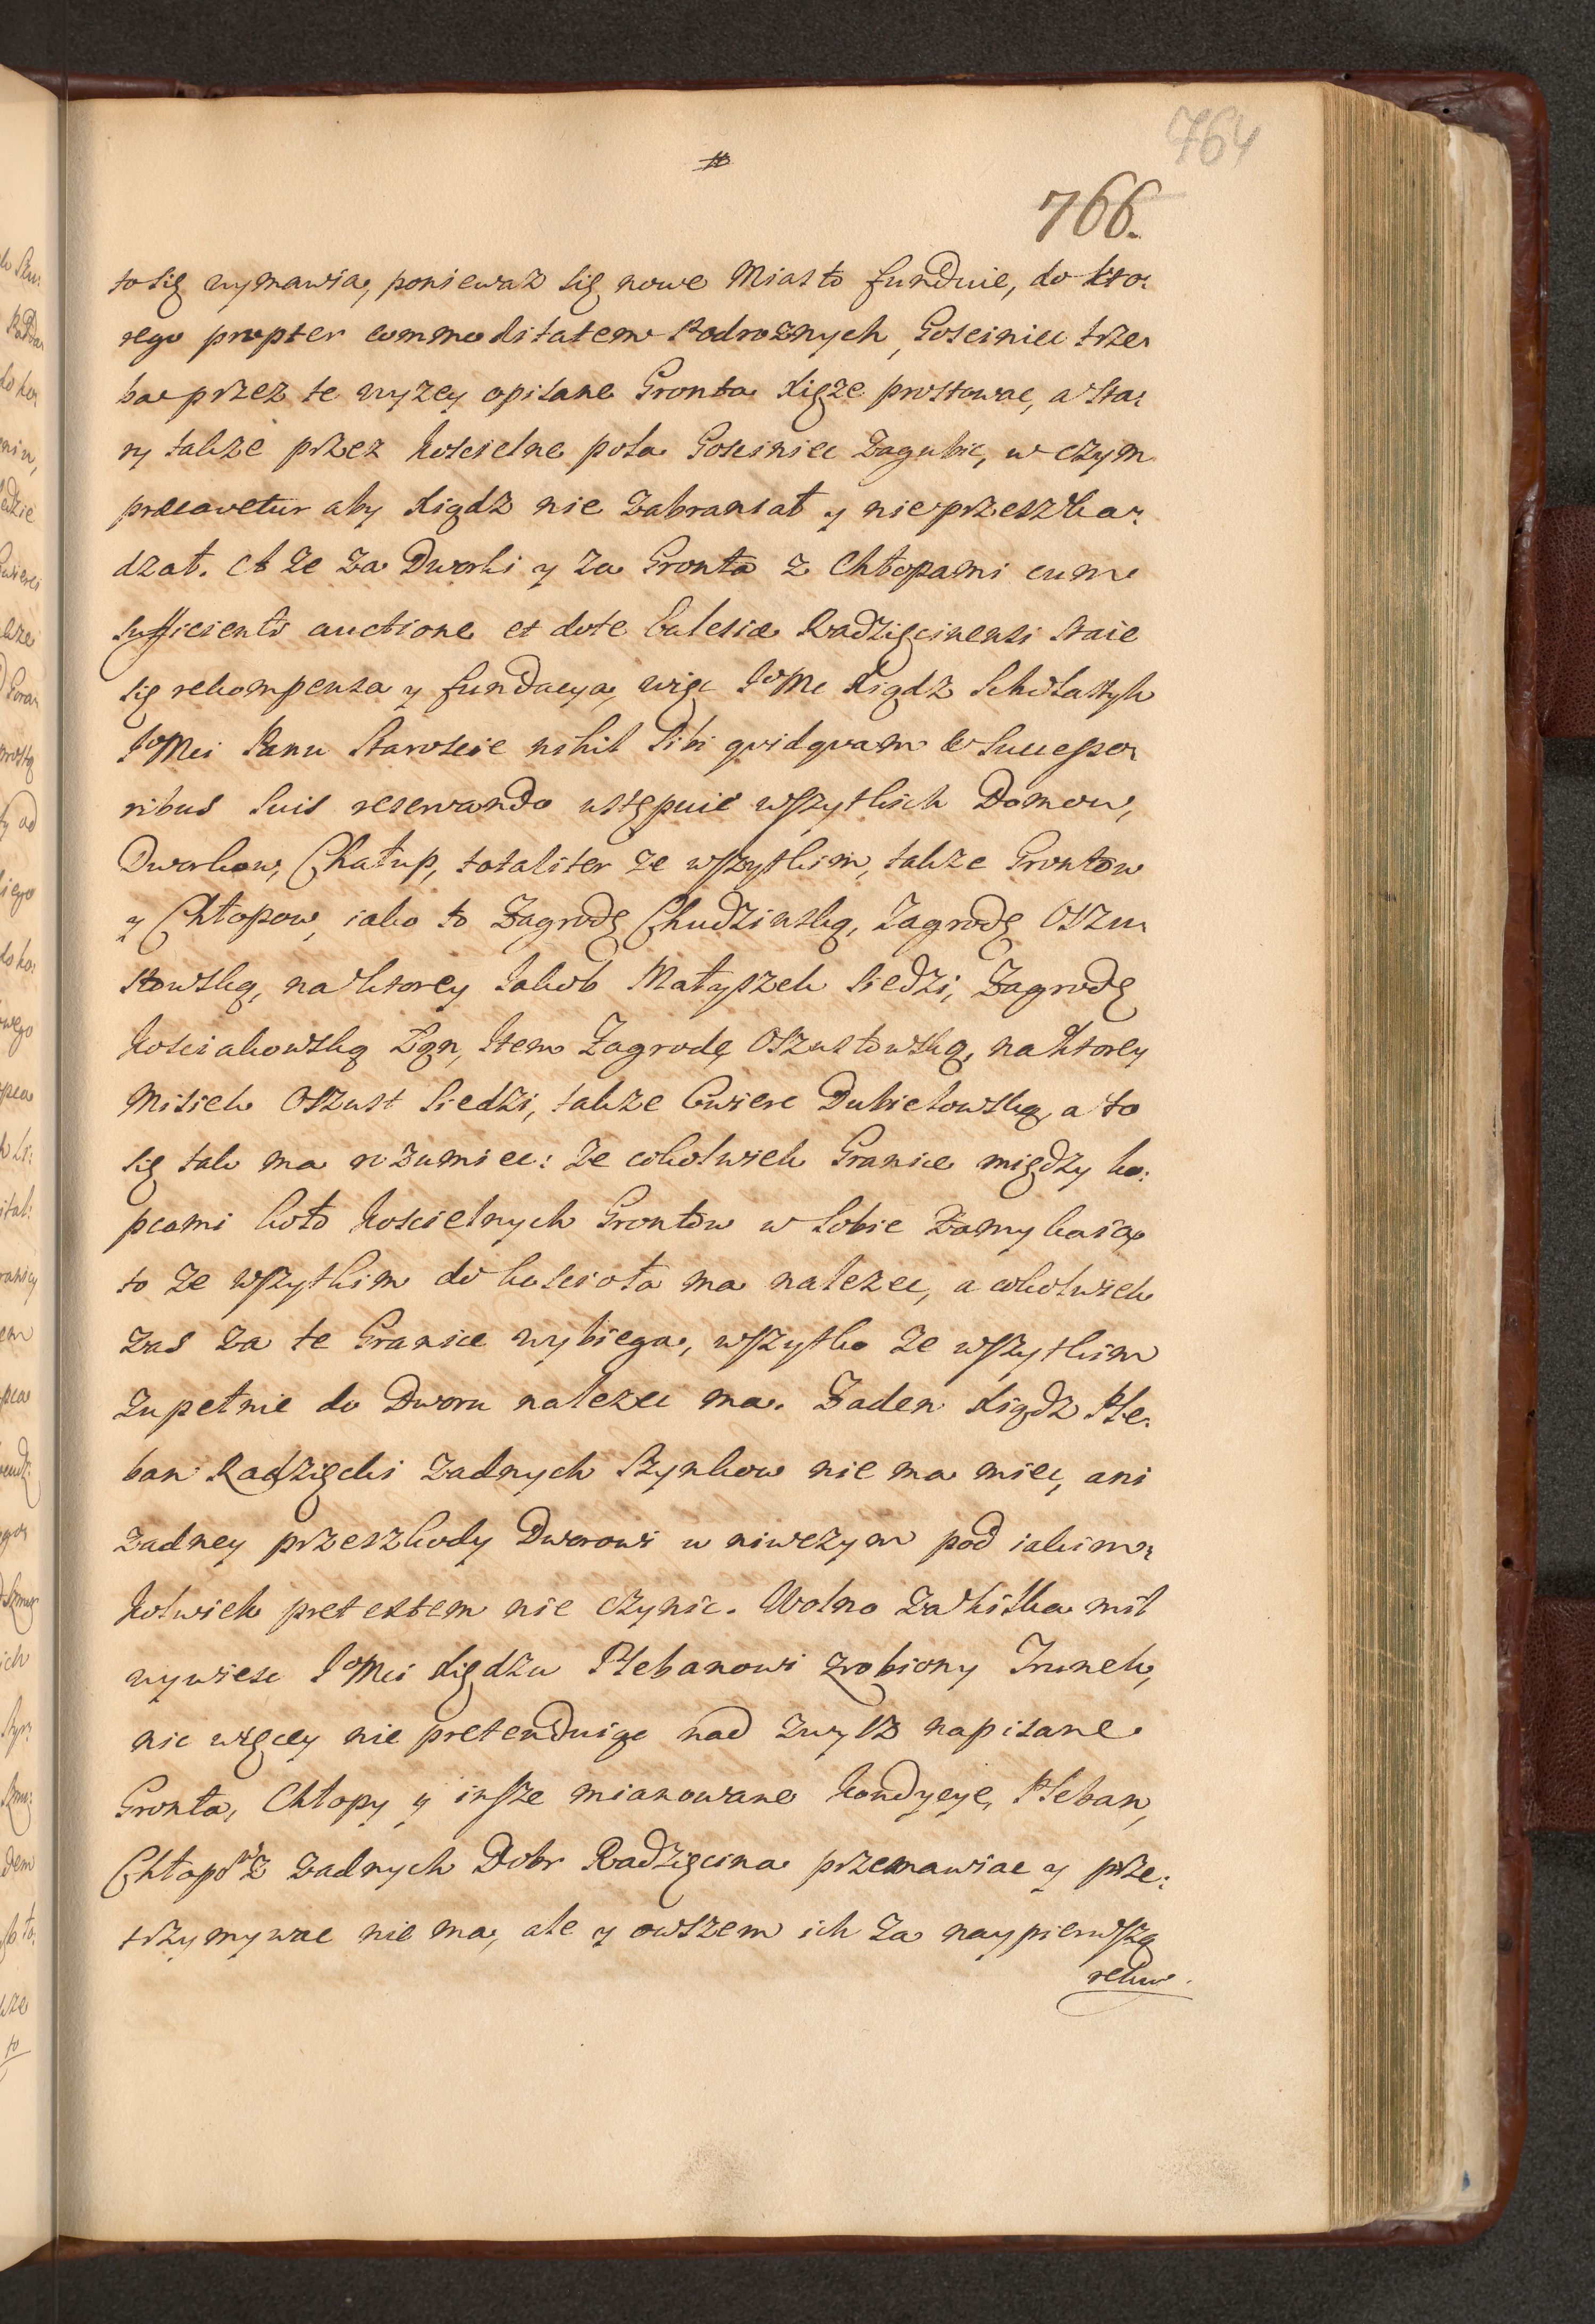 764
766.
to się wymawia, ponieważ się nowe Miasto funduie, do kto:
rego propter commoditatem Podroznych, Gosciniec trze:
ba przez te wyzey opisane Gronta Xięże prostowac, a sta:
ry takze przez koscielne pola Gosciniec zagubic, w czym
præcavetur aby Xiądz nie zabraniał y nie przeszka:
dzał. A ze za Dworki y za Gronta z Chłopami cum
sufficienti auctione et dote Eclesiæ Radzięcinensi staie
się rekompensa y fundacya, więc JoMc Xiądz Scholastyk
JoMci Panu Staroscie nihil sibi quidquam & Successo:
ribus suis reservando ustępuie wszytkich Domow,
Dworkow, Chałup, totaliter ze wszytkim, takze Grontow
y Chłopow, iako to Zagrodę Chudzinską, Zagrodę Oszu
stowską, na ktorey Jakob Matyszek siedzi, Zagrodę
Kosciakowską Łgn, Item Zagrodę Oszustowską, na ktorey
Misiek Oszust siedzi, takze Cwierc Dubielowską, a to
się tak ma rozumiec: ze cokolwiek Granice między ko:
pcami koło koscielnych Grontow w sobie zamykaią
to ze wszytkim do koscioła ma nalezec, a cokolwiek
zas za te Granice wybiega, wszytko ze wszytkim
zupełnie do Dworu nalezec ma. Zaden Xiądz Ple:
ban Radzięcki zadnych Szynkow nie ma miec, ani
zadney przeszkody Dworowi w niwczym pod iakim:
kolwiek pretextem nie czynic. Wolno za kilka mil
wywiesc JoMci Xiędzu Plebanowi zrobiony Trunek,
nic więcey nie pretenduiąc nad zwysz napisane
Gronta, Chłopy y insze mianowane kondycye, Pleban,
Chłopow z zadnych Dobr Radzięcina przemawiac y prze:
trzymywac nie ma, ale y owszem ich za naypierwszą
rekw